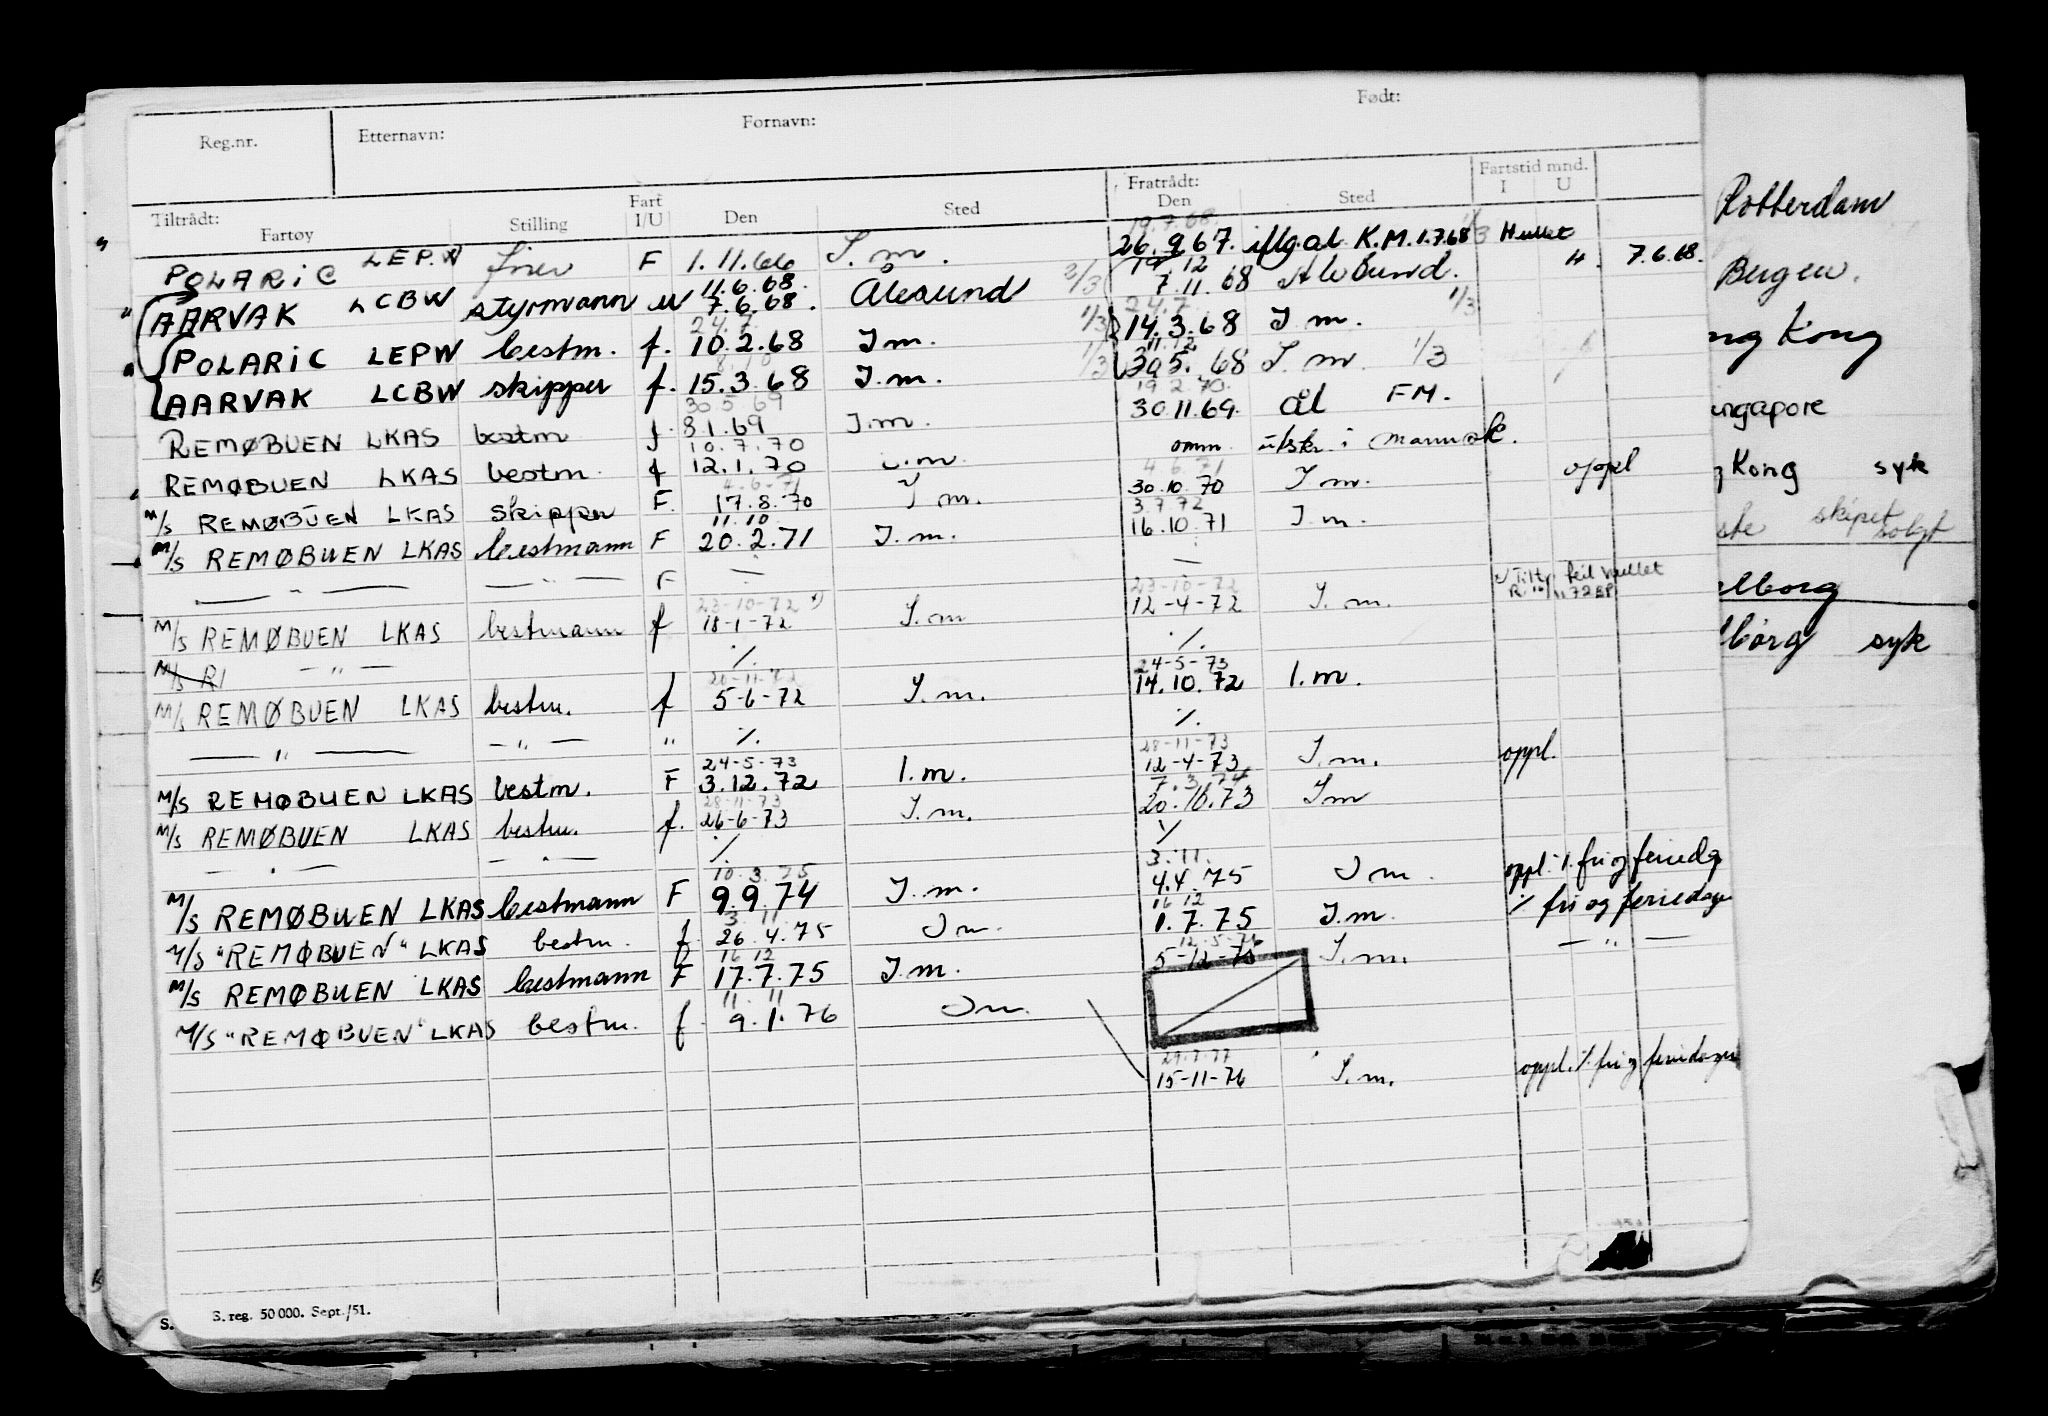 Reg.nr. Etternavn: Fornavn: Født:
Tiltrådt: Fartøy Stilling Fart I/U Den Sted Fratrådt: Den Sted Fartstid mnd. I U
19.7.68.
POLARIC LEPW F 1.11.66 I.m. 26.9.67. iflg.al K.M. 1.7.68 Hullet
11.6.68. 19 12 H. 7.6.68.
AARVAK LCBW styrmann u 7.6.68. Ålesund 2/3 7.11.68
24.7. 24.7
POLARIC LEPW bestm. f. 10.2.68 I.m. 1/3 14.3.68 I m. 1/3
8.10 11.12
AARVAK LCBW skipper f. 15.3.68 I.m. 1/3 30.5.68 I.m. 1/3
30.5.69 19.2.70.
REMØBUEN LKAS bestm f. 8.1.69 I.m. 30.11.69. ål FM.
10.7.70
REMØBUEN LKAS bestm. f 12.1.70 I.m. omm. utskr. i mannsk.
4.6.71 4.6.71
M/S REMØBUEN LKAS skipper F. 17.8.70 I m. 30.10.70 I m. oppl
11.10 3.7.72
M/S REMØBUEN LKAS bestmann F 20.2.71 I.m. 16.10.71 I.m.
— " — — " — F — —
23-10-72 23-10-72
M/S REMØBUEN LKAS bestmann f 18-1-72 I.m 12-4-72 I.m.
M/S R — " — ./. ./.
20-11-72 24-5-73
M/S REMØBUEN LKAS bestm. f 5-6-72 I.m. 14.10.72 I.m.
— " — — " — " ./. ./.
24-5-73 28-11-73
M/S REMØBUEN LKAS bestm. F 3.12.72 I.m. 12-4-73 I.m. oppl.
28-11-73 7.3.74
M/S REMØBUEN LKAS bestm. f. 26-6-73 I.m. 20.10.73 I m
— " — — " — ./. ./.
10.3.75 3.11.
M/S REMØBUEN LKAS bestmann F 9.9.74 I.m. 4.4.75 I m. oppl. ./. fri og feriedg
3 11 16 12
M/S "REMØBUEN" LKAS bestm. f 26.4.75 I m. 1.7.75 I.m. ./. fri og feriedager
16 12 12-5-76
M/S REMØBUEN LKAS bestmann F 17.7.75 I.m. 5-12-75 I.m. — " —
11. 11
M/S "REMØBUEN" LKAS bestm. f 9.1.76 I m.
29.7.77
15-11-76 I.m. oppl. ./. fri og feriedager
S. reg. 50 000. Sept./51.
S.
Rotterdam
Bergen.
ng Kong
ingapore
g Kong syk
ste skipet solgt
lborg
lborg syk